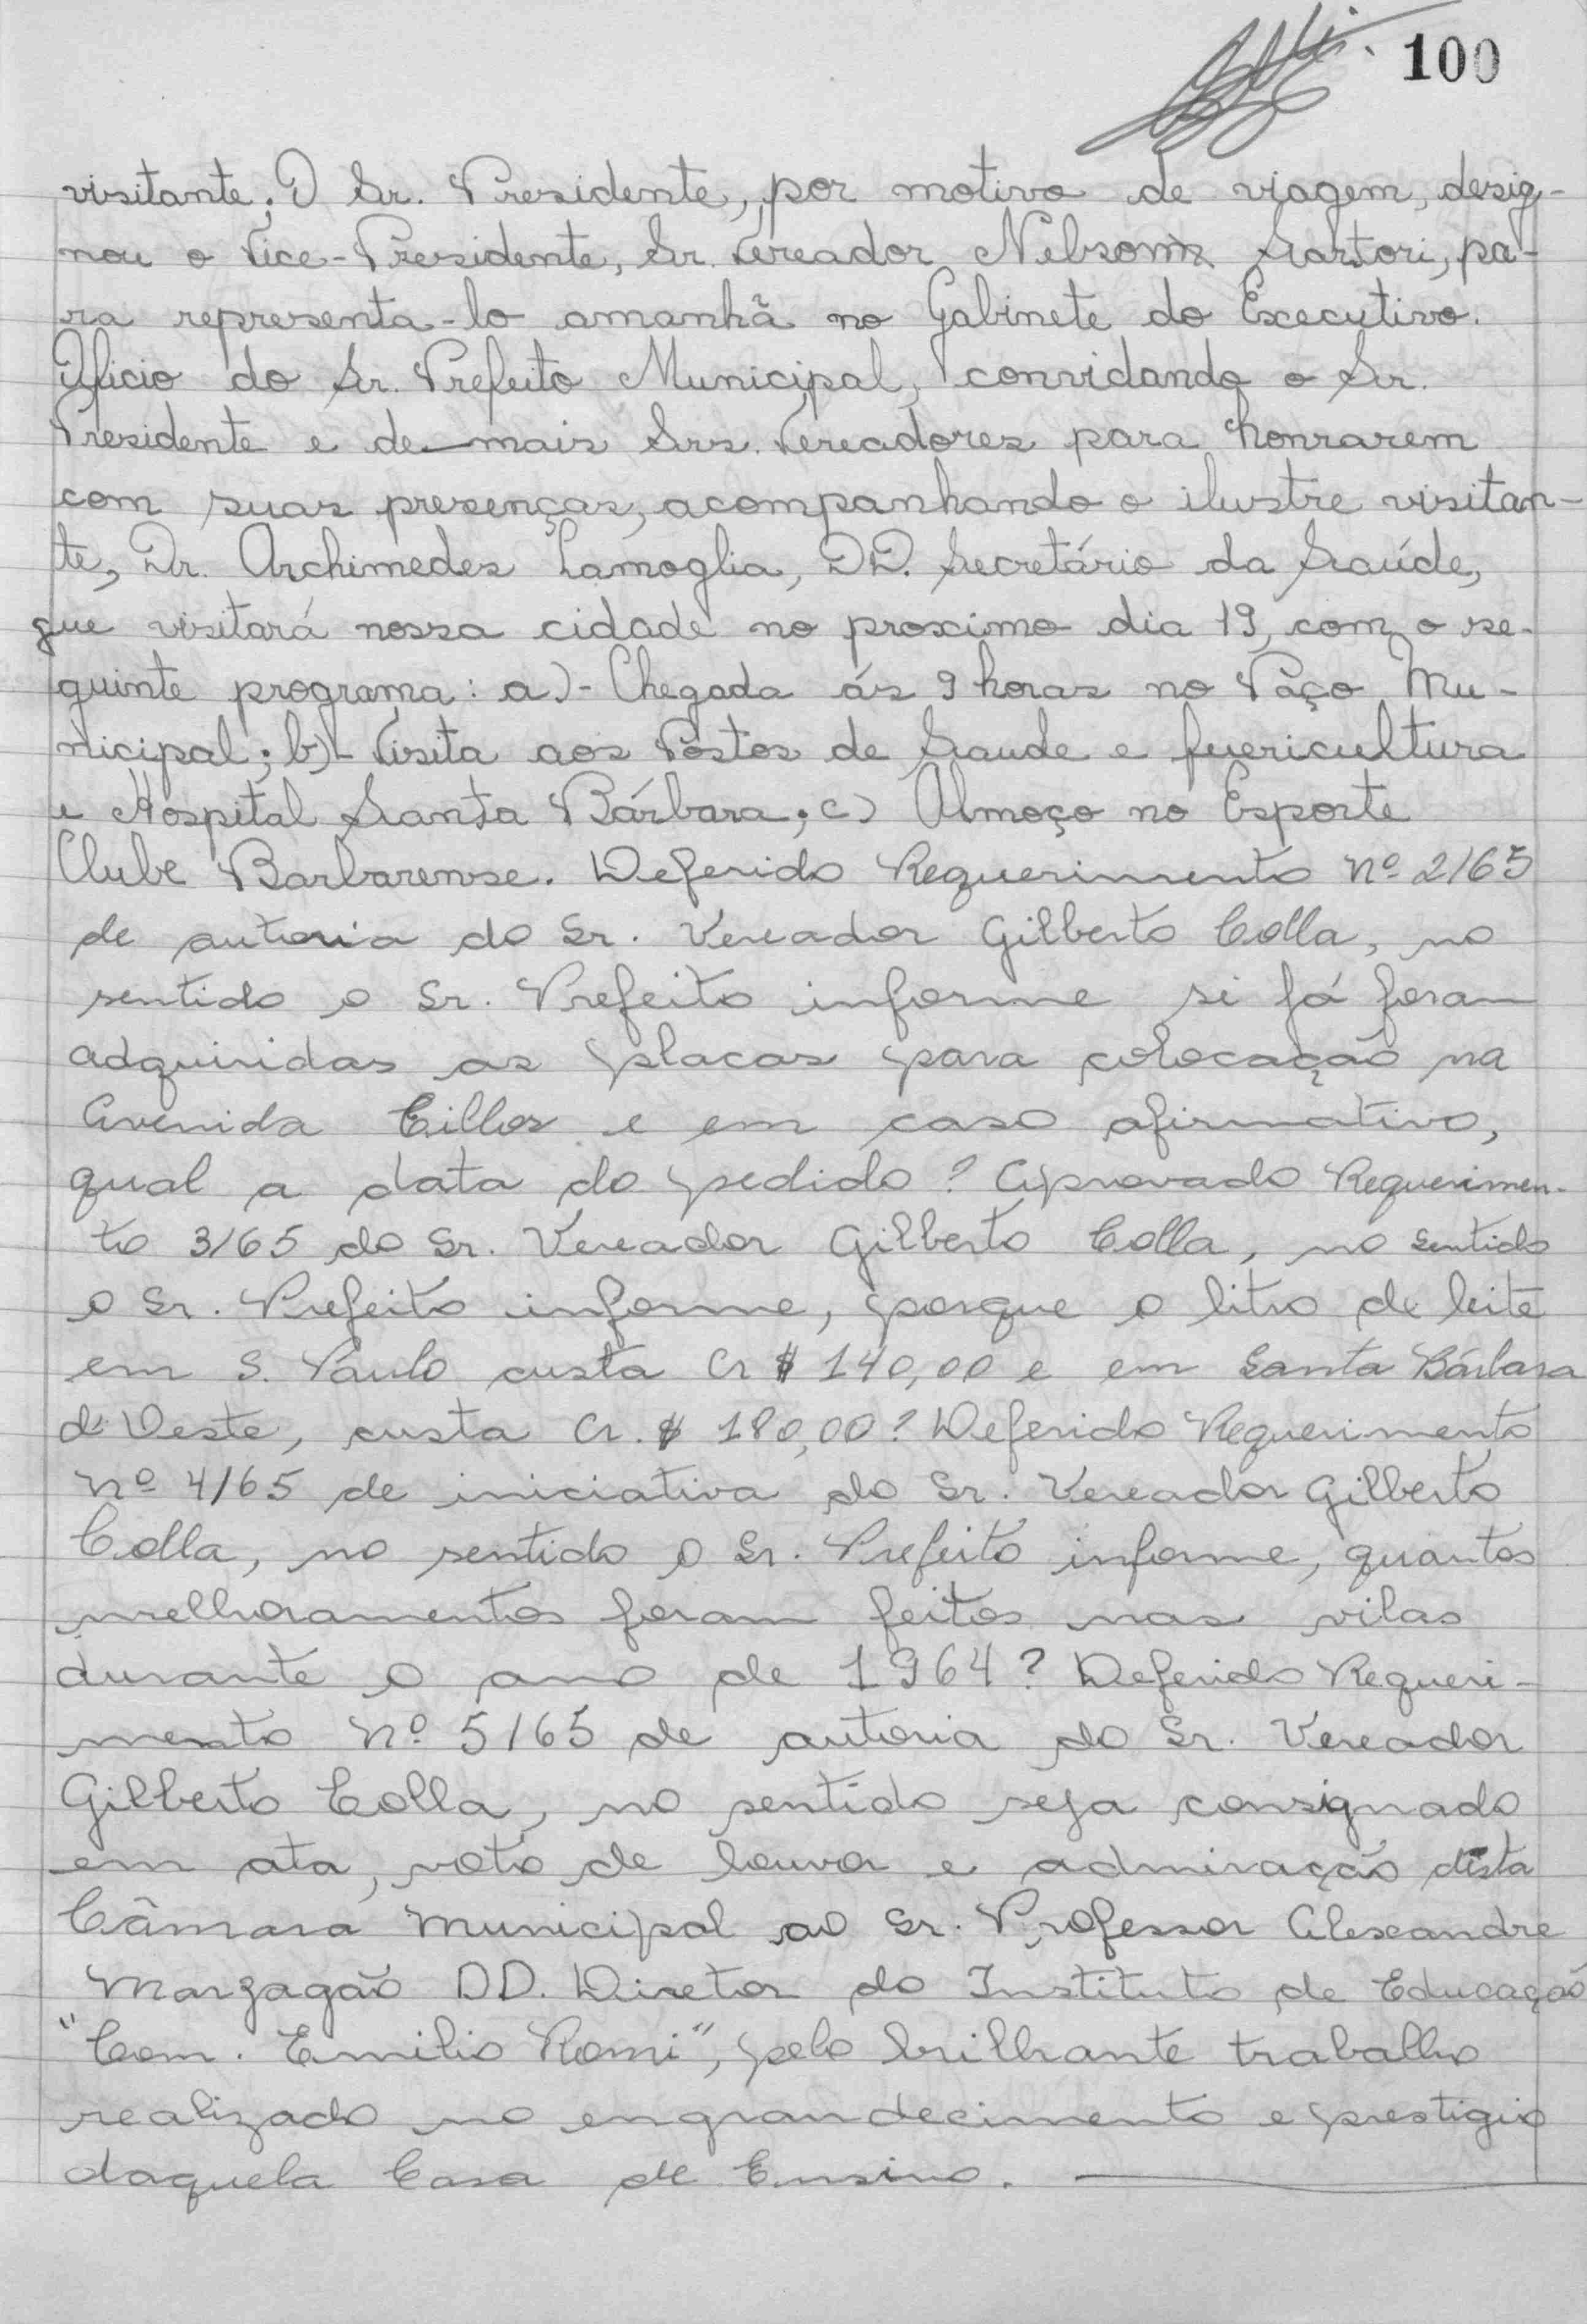 100
visitante; O Sr. Presidente, por motivo de viagem, desig-
nou o Vice-Presidente, Sr. Vereador Nelson Sartori, pa-
ra representa-lo amanhã no Gabinete do Executivo.
Oficio do Sr. Prefeito Municipal, convidando o Sr.
Presidente e de-mais Srs. Vereadores para honrarem
com suas presenças, acompanhando o ilustre visitan-
te, Dr. Archimedes Lamoglia, DD. Secretário da Saúde,
que visitará nossa cidade no proximo dia 19, com o se-
guinte programa: a)- Chegada ás 9 horas no Paço Mu-
nicipal; b)- Visita aos Postos de Saude e Puericultura
e Hospital Santa Bárbara; c) Almoço no Esporte
Clube Barbarense. Deferido Requerimento Nº 2/65
de autoria do Sr. Vereador Gilberto Colla, no
sentido o Sr. Prefeito informe si já foram
adquiridas as placas para colocação na
Avenida Cillos e em caso afirmativo,
qual a data do pedido? Aprovado Requerimen-
to 3/65 do Sr. Vereador Gilberto Colla, no sentido
o Sr. Prefeito informe, porque o litro de leite
em S. Paulo custa Cr $ 140,00 e em Santa Bárbara
d'Oeste, custa Cr. $ 180,00? Deferido Requerimento
Nº 4/65 de iniciativa do Sr. Vereador Gilberto
Colla, no sentido o Sr. Prefeito informe, quantos
melhoramentos foram feitos nas vilas
durante o ano de 1964? Deferido Requeri-
mento Nº 5/65 de autoria do Sr. Vereador
Gilberto Colla, no sentido seja consignado
em ata, voto de louvor e admiração desta
Câmara Municipal ao Sr. Professor Alexandre
Marzagão DD. Diretor do Instituto de Educação
"Com. Emilio Romi", pelo brilhante trabalho
realizado no engrandecimento e prestigio
daquela Casa de Ensino.